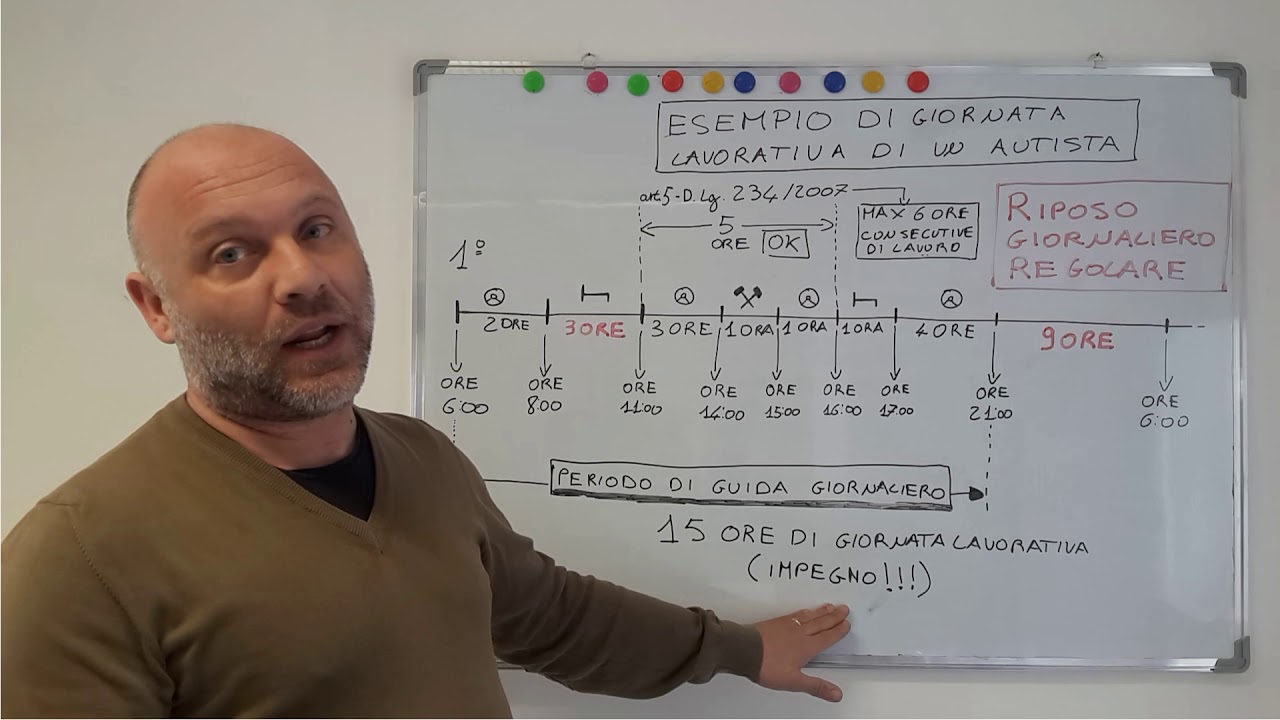 ESEMPIO DI GIORNATA
LAVORATIVA DI UN AUTISTA
art.5-D.Lg. 234/2007
5
ORE OK
MAX 6 ORE
CONSECUTIVE
DI LAVORO
RIPOSO
GIORNALIERO
REGOLARE
1º
2 ORE 3 ORE 3 ORE 1 ORA 1 ORA 1 ORA 4 ORE 9 ORE
ORE 6:00
ORE 8:00
ORE 11:00
ORE 14:00
ORE 15:00
ORE 16:00
ORE 17:00
ORE 21:00
ORE 6:00
PERIODO DI GUIDA GIORNALIERO
15 ORE DI GIORNATA LAVORATIVA
(IMPEGNO!!!)